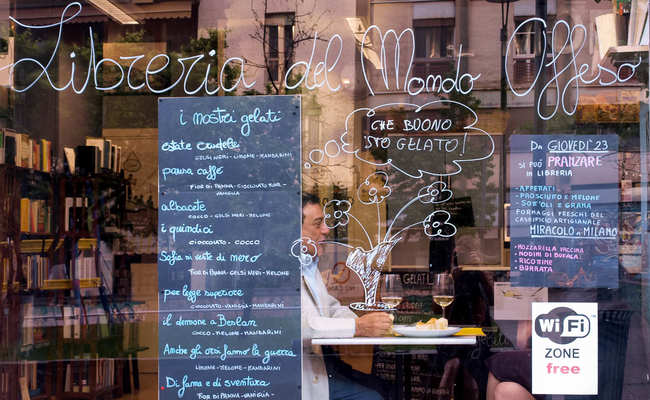 Libreria del Mondo Offeso
i nostri gelati
estate crudele
GELSI NERI - LIMONE - MANDARINI
panna caffè
FIOR DI PANNA - CIOCCOLATO FIOR -
albacete
COCCO - GELSI NERI - MELONE
i quindici
CIOCCOLATO - COCCO
Sofia si veste di nero
FIOR DI PANNA - GELSI NERI - MELONE
per legge superiore
CIOCCOLATO - VANIGLIA - MANDARINI
il demone a Beslan
COCCO - MELONE - MANDARINI
Anche gli orsi fanno la guerra
LIMONE - MELONE - MANDARINI
Di fama e di sventura
FIOR DI PANNA - VANIGLIA -
CHE BUONO
STO GELATO!
DA GIOVEDI' 23
SI PUÒ PRANZARE
IN LIBRERIA
- AFFETTATI
- PROSCIUTTO E MELONE
- SOTT'OLI E GRANA
FORMAGGI FRESCHI DEL
CASEIFICIO ARTIGIANALE
MIRACOLO A MILANO
- MOZZARELLA VACCINA
- NODINI DI BUFALA
- RICOTTINE
- BURRATA
GELATI
WiFi
ZONE
free